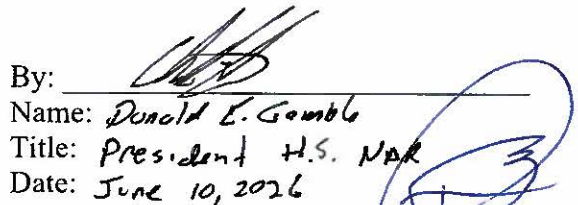 By:
Name: Donald E. Gamble
Title: President H.S. NAR
Date: June 10, 2026